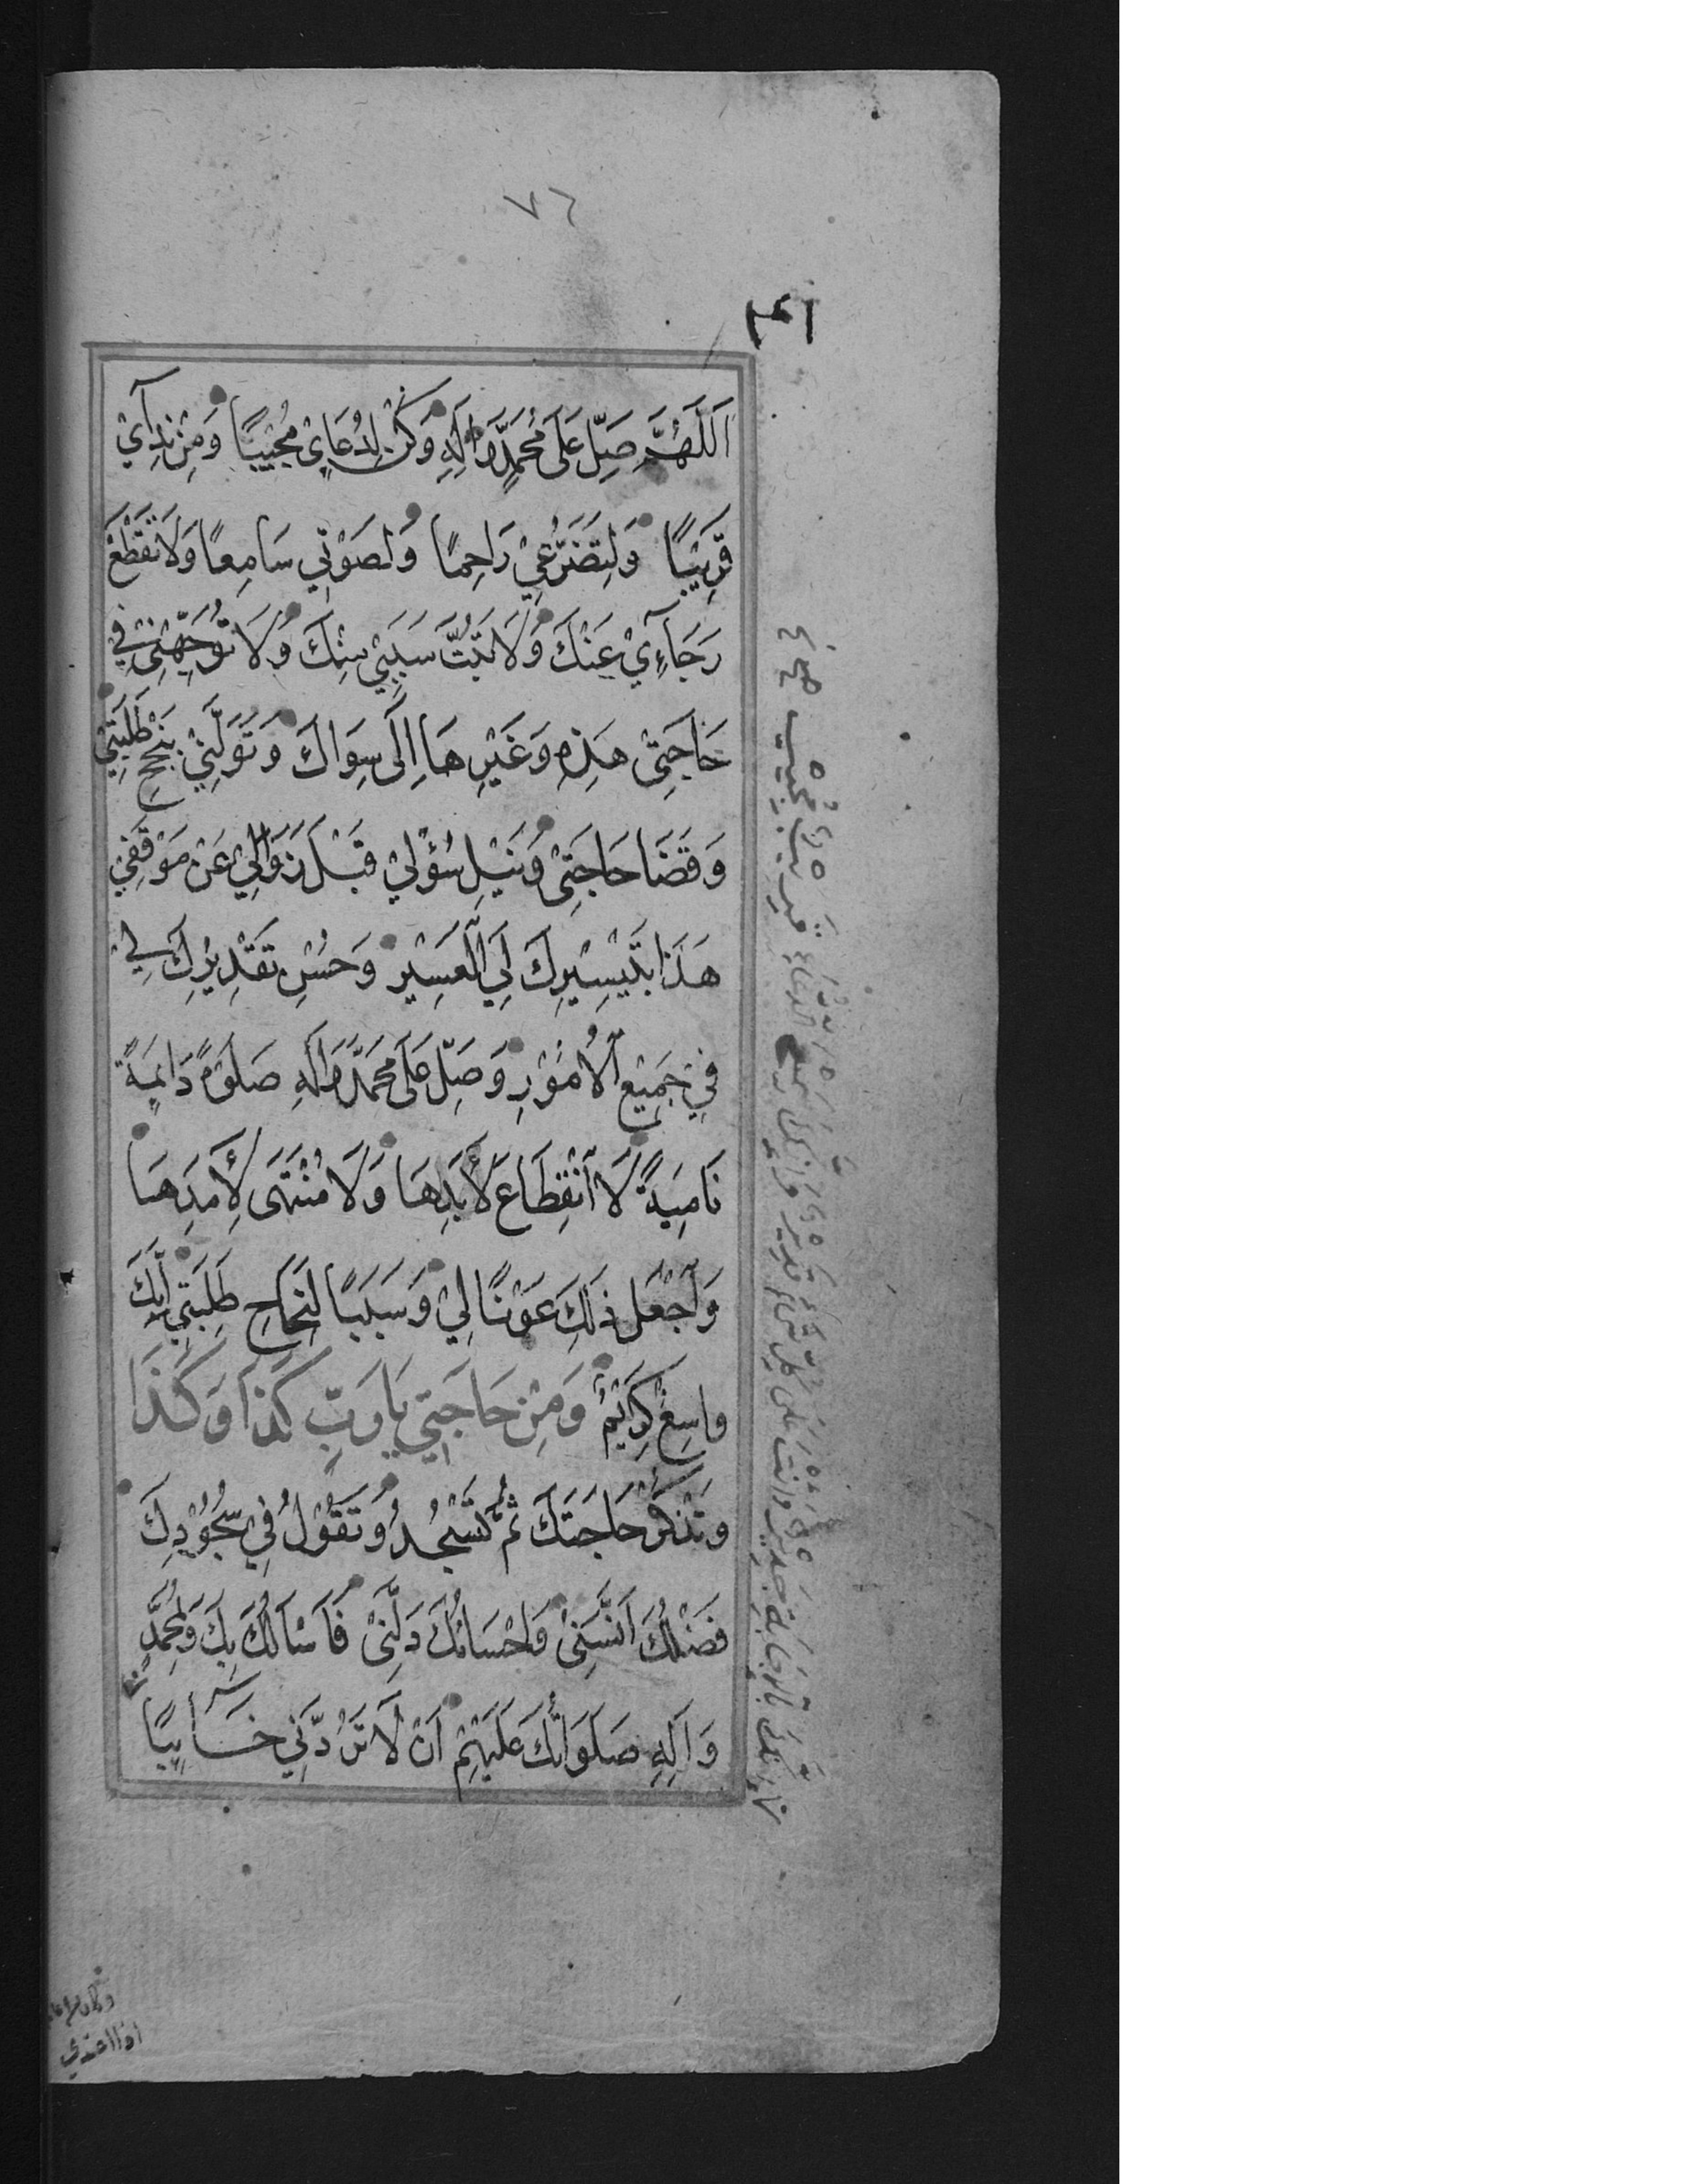 ٧٦
اَللّٰهُمَّ صَلِّ عَلَى مُحَمَّدٍ وَاٰلِهِ وَكُنْ لِدُعَايِ مُجِيْبًا وَمِنْ نِدَآيْ
قَرِيْبًا وَلِتَضَرُّعِيْ رَاحِمًا وَلِصَوْتِي سَامِعًا وَلَا تَقْطَعْ
رَجَآءِيْ عَنْكَ وَلَا تَبُتَّ سَبَبِيْ مِنْكَ وَلَا تُوَجِّهْنِيْ فِي
حَاجَتِيْ هٰذِهِ وَغَيْرِهَا اِلَى سِوَاكَ وَتَوَلَّنِيْ بِنُجْحِ طَلِبَتِيْ
وَقَضَا حَاجَتِيْ وَنَيْلِ سُؤْلِيْ قَبْلَ زَوَالِيْ عَنْ مَوْقِفِيْ
هٰذَا بِتَيْسِيْرِكَ لِيَ الْعَسِيْرَ وَحُسْنِ تَقْدِيْرِكَ لِيْ
فِيْ جَمِيْعِ الْاُمُوْرِ وَصَلِّ عَلَى مُحَمَّدٍ وَاٰلِهِ صَلٰوةً دَايِمَةً
نَامِيَةً لَا انْقِطَاعَ لِأَبَدِهَا وَلَا مُنْتَهَى لِأَمَدِهَا
وَاجْعَلْ ذٰلِكَ عَوْنًا لِيْ وَسَبَبًا لِنَجَاحِ طَلِبَتِيْ اِنَّكَ
وَاسِعٌ كَرِيْمٌ وَمِنْ حَاجَتِيْ يَا رَبِّ كَذَا وَكَذَا
وَتَذْكُرُ حَاجَتَكَ ثُمَّ تَسْجُدُ وَتَقُوْلُ فِيْ سُجُوْدِكَ
فَضْلُكَ اٰنَسَنِيْ وَاِحْسَانُكَ دَلَّنِيْ فَاَسْاَلُكَ بِكَ وَبِمُحَمَّدٍ
وَاٰلِهِ صَلَوَاتُكَ عَلَيْهِمْ اَنْ لَا تَرُدَّنِيْ خَايِبًا
سميع الدعاء قريب مجيب
وانت على كل شيء قدير وانك
بالاجابة جدير